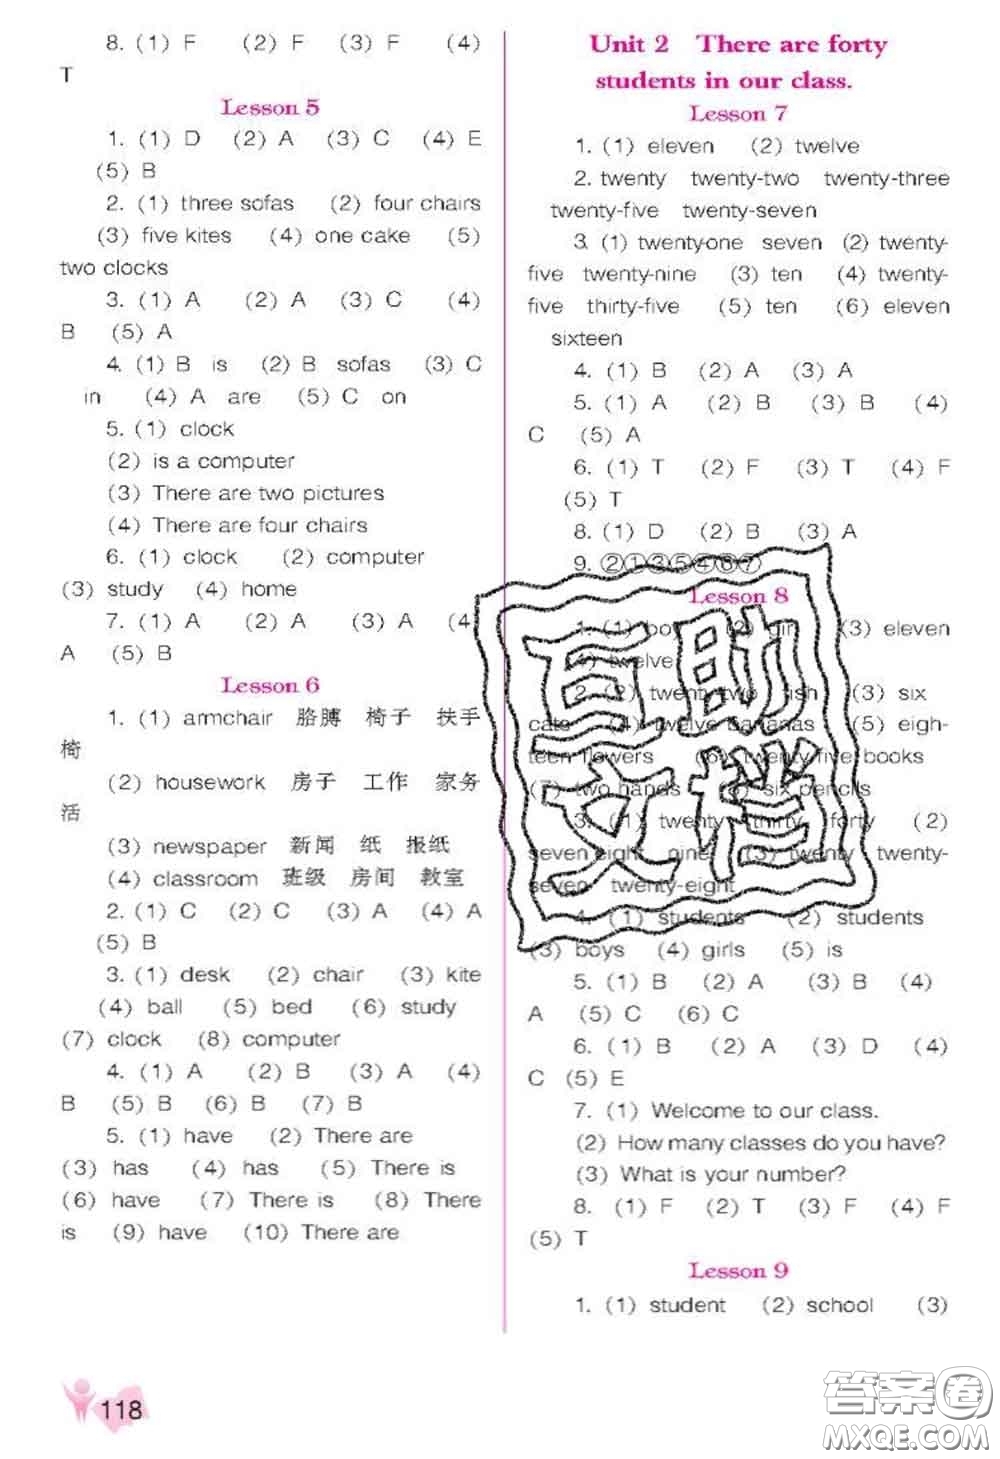 8. (1) F (2) F (3) F (4)
T
Lesson 5
1. (1) D (2) A (3) C (4) E
(5) B
2. (1) three sofas (2) four chairs
(3) five kites (4) one cake (5)
two clocks
3. (1) A (2) A (3) C (4)
B (5) A
4. (1) B is (2) B sofas (3) C
in (4) A are (5) C on
5. (1) clock
(2) is a computer
(3) There are two pictures
(4) There are four chairs
6. (1) clock (2) computer
(3) study (4) home
7. (1) A (2) A (3) A (4)
A (5) B
Lesson 6
1. (1) armchair 胳膊 椅子 扶手
椅
(2) housework 房子 工作 家务
活
(3) newspaper 新闻 纸 报纸
(4) classroom 班级 房间 教室
2. (1) C (2) C (3) A (4) A
(5) B
3. (1) desk (2) chair (3) kite
(4) ball (5) bed (6) study
(7) clock (8) computer
4. (1) A (2) B (3) A (4)
B (5) B (6) B (7) B
5. (1) have (2) There are
(3) has (4) has (5) There is
(6) have (7) There is (8) There
is (9) have (10) There are
Unit 2 There are forty
students in our class.
Lesson 7
1. (1) eleven (2) twelve
2. twenty twenty-two twenty-three
twenty-five twenty-seven
3. (1) twenty-one seven (2) twenty-
five twenty-nine (3) ten (4) twenty-
five thirty-five (5) ten (6) eleven
sixteen
4. (1) B (2) A (3) A
5. (1) A (2) B (3) B (4)
C (5) A
6. (1) T (2) F (3) T (4) F
(5) T
8. (1) D (2) B (3) A
9. ②①③⑤④⑥⑦
Lesson 8
1. (1) boy (2) girl (3) eleven
twelve
2. (2) twenty-two fish (3) six
cats (4) twelve bananas (5) eigh-
teen flowers (6) twenty-five books
(7) two hands (8) six pencils
3. (1) twenty thirty forty (2)
seven eight nine (3) twenty twenty-
seven twenty-eight
4. (1) students (2) students
(3) boys (4) girls (5) is
5. (1) B (2) A (3) B (4)
A (5) C (6) C
6. (1) B (2) A (3) D (4)
C (5) E
7. (1) Welcome to our class.
(2) How many classes do you have?
(3) What is your number?
8. (1) F (2) T (3) F (4) F
(5) T
Lesson 9
1. (1) student (2) school (3)
互助
文档
118
答案卷
MXQE.COM